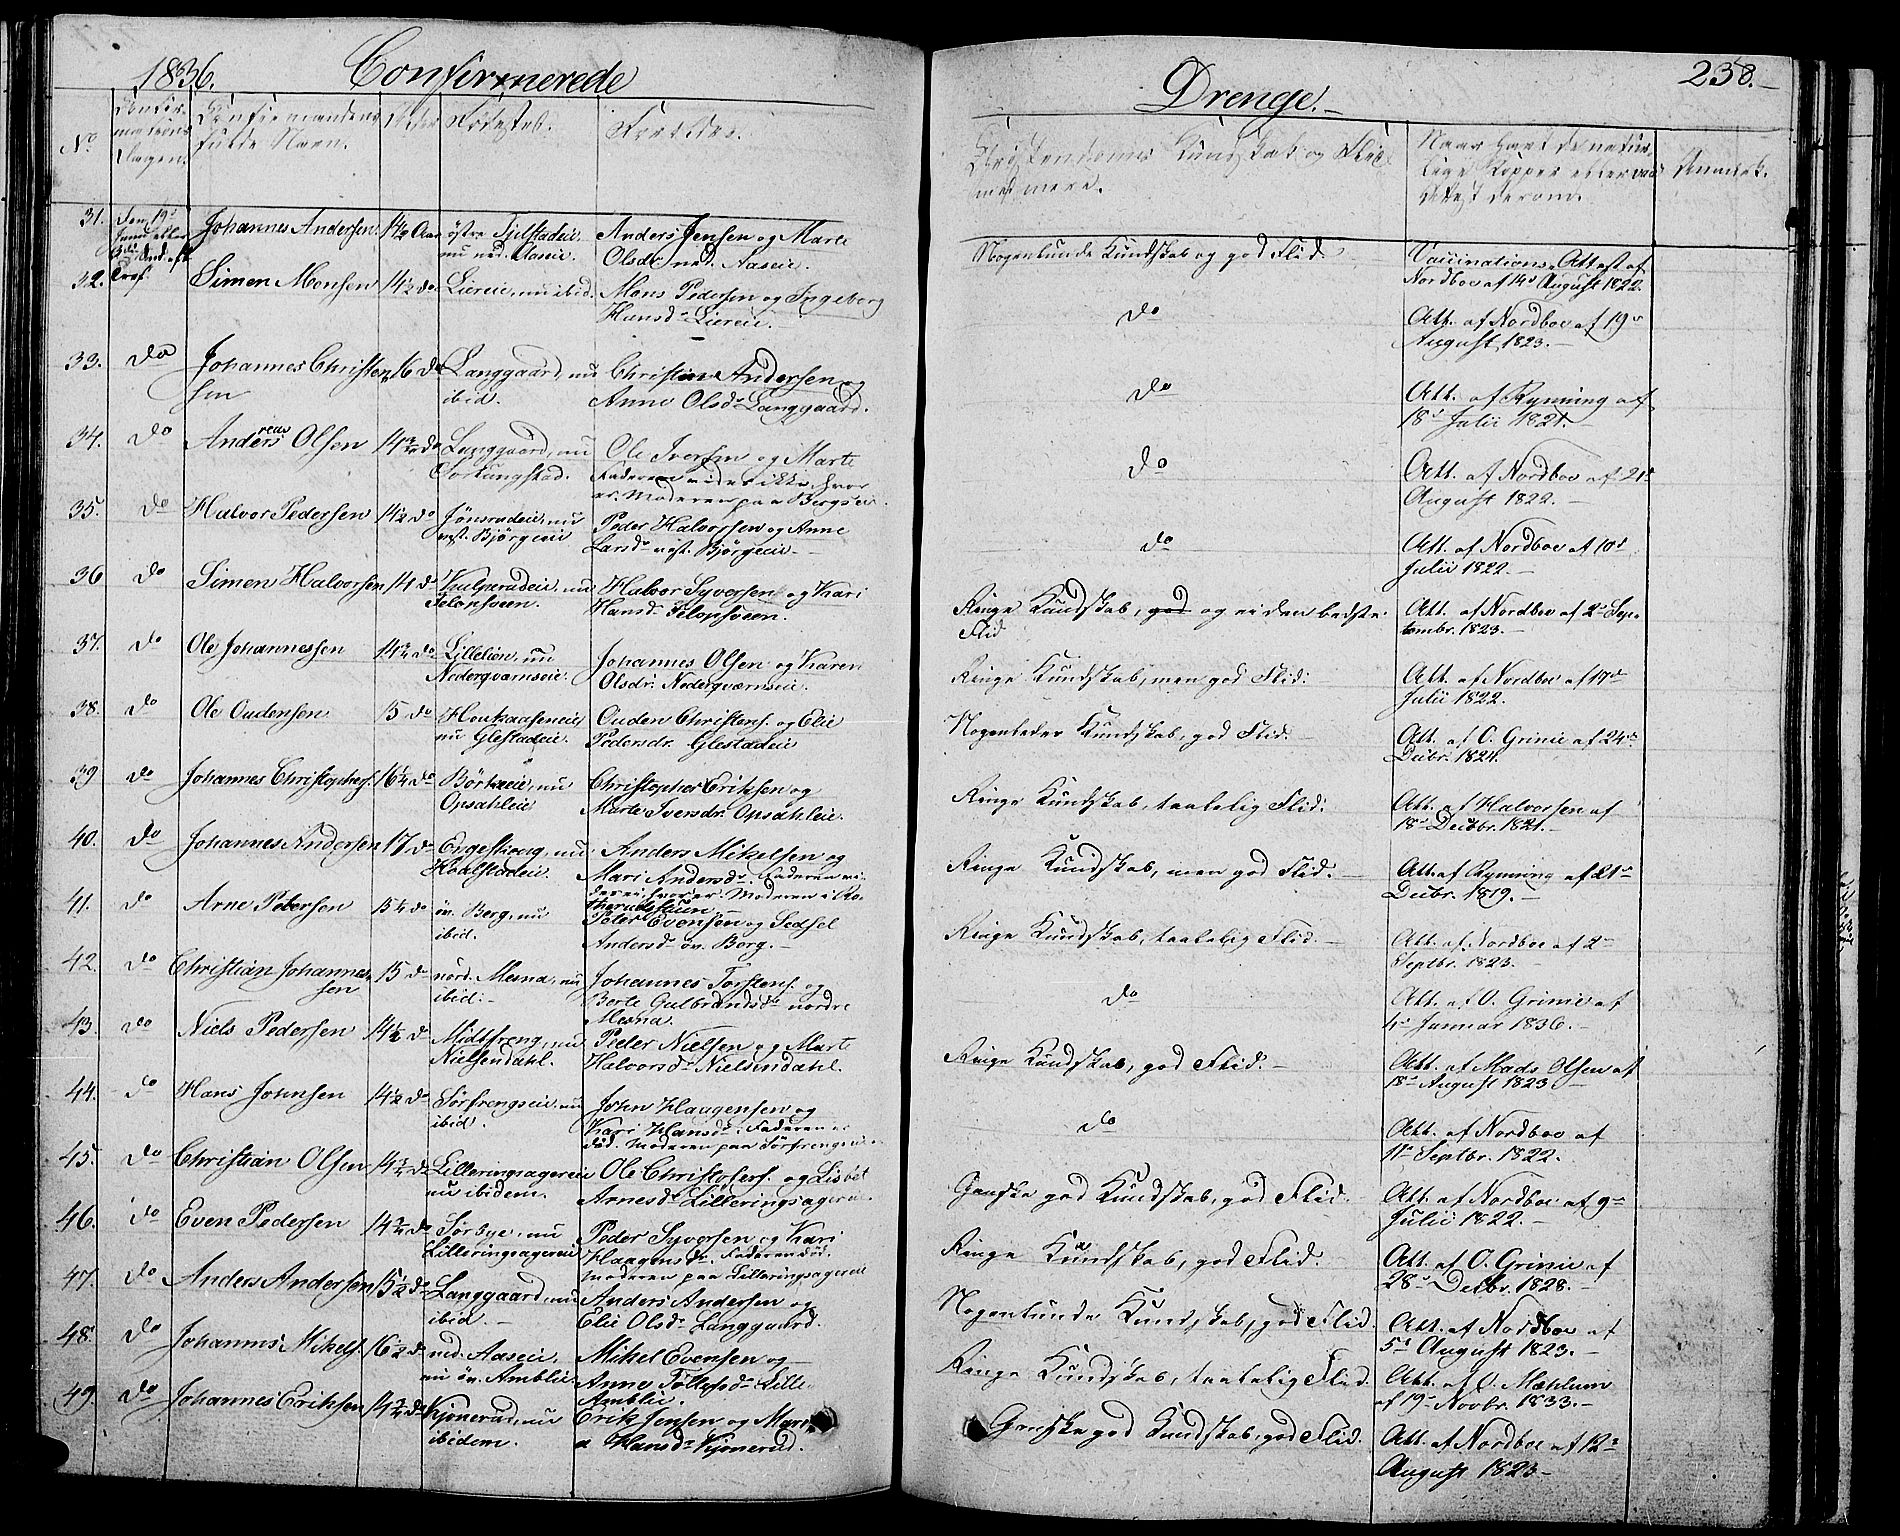 1836. Confirmerede
Drenge.
238.
No
Confirmations Dagen.
Confirmandens fulde Navn.
Alder
Fødested.
Forældre.
Christendoms Kundskab og Flid med mere.
Naar havt de naturlige Kopper eller vac: Attest derom.
Anmærk.
31. Den 19d Junii eller 3d Sønd. eft. Tref. Johannes Andersen 14½ Aar østre Fjelstadeie, nu ned. Aaseie. Anders Jensen og Marte Olsdr. ned. Aaseie. Nogenlunde Kundskab og god Flid. Vaccinations-Attest af Nordboe af 14d August 1822.
32. Simen Monsen 14½ do Liereie, nu ibid. Mons Pedersen og Ingeborg Hansdr Liereie. do Att. af Nordboe af 19d August 1823.
33. do Johannes Christensen 16 do Langgaard, nu ibid. Christian Andersen og Anne Olsdr Langgaard. do Att. af Rynning af 18d Julii 1821.
34. do Andreas Olsen 14¾ do Langgaard, nu Ole Iversen og Marte Faderen vides ikke hvor er. Moderen paa Bergseie. do Att. af Nordboe af 21d August 1822.
35. do Halvor Pedersen 14½ do Jønsrudeie, nu vest. Bjørgeeie Peder Halvorsen og Anne Larsdr vest. Bjørgeeie. do Att. af Nordboe af 10d Julii 1822.
36 do Simen Halvorsen 14 do nu Halvor Syversen og Kari Hansdr Ringe Kundskab, god og ei den bedste Flid Att. af Nordboe af 2d Septembr. 1823.
37. do Ole Johannessen 14¾ do Lillelien, nu Nederqværnseie. Johannes Olsen og Karen Olsdr. Nederqværnseie. Ringe Kundskab, men god Flid. Att. af Nordboe af 17d Julii 1822.
38. do Ole Oudensen 15 do nu Glestadeie. Ouden Christens. og Elie Pedersdr. Glestadeie Nogenledes Kundskab, god Flid. Att. af O. Grinie af 24d Decbr. 1824.
39 do Johannes Christophers. 16¼ do Børkeeie, nu Opsahleie Christopher Eriksen og Marte Iversdr. Opsahleie. Ringe Kundskab, taalelig Flid. Att. af Halvorsen af 18d Decbr. 1821.
40. do Johannes Andersen 17 do Engeskoug, nu Anders Mikelsen og Mari Andersdr. Faderen vides ei hvor er. Moderen i Ringe Kundskab, men god Flid. Att. af Rynning af 21d Decbr. 1819.
41. do Arne Petersen 15¼ do øv. Berg, nu ibid. Peter Evensen og Sedsel Andersdr øv. Berg. Ringe Kundskab, taalelig Flid. Att. af Nordboe af 2d Septbr. 1823.
42. do Christian Johannessen 15 do nord. Mesna, nu ibid. Johannes Torstens. og Berte Gulbrandsdr nordre Mesna. do Att. af O. Grinie af 4d Januar 1836.
43. do Niels Pedersen 14½ do Midtfreng, nu Nielsendahl. Peder Nielsen og Marte Halvorsdr Nielsendahl. Ringe Kundskab, god Flid. Att. af Mads Olsen af 18d August 1823
44. do Hans Johnsen 14½ do Sørfrengseie, nu ibid. John Haagensen og Kari Hansdr. Faderen er død. Moderen paa Sørfrengseie. do Att. af Nordboe af 11d Septbr. 1822.
45. do Christian Olsen 14½ do Lilleringsagereie nu ibidem. Ole Christofers. og Lisbet Arnesdr Lilleringsagereie. Ganske god Kundskab, god Flid. Att. af Nordboe af 9d Julii 1822.
46. do Even Pedersen 14¾ do Sørbye, nu Lilleringsagereie Peder Syversen og Kari Haagensdr. Faderen død. Moderen paa Lilleringsagereie Ringe Kundskab, god Flid. Att. af O. Grinie af 28d Decbr. 1828.
47. do Anders Andersen 15½ do Langgaard, nu ibid. Anders Andersen og Elie Olsdr Langgaard. Nogenlunde Kundskab, god Flid. Att. af Nordboe af 5d August 1823.
48. do Johannes Mikels. 16½ do ned. Aaseie, nu øv. Amblie. Mikel Evensen og Anne Tollefsdr Lille Amblie. Ringe Kundskab, taalelig Flid. Att. af O. Mæhlum af 19d Novbr. 1833.
49. do Johannes Eriksen 14¾ do Kjønerud, nu ibidem. Erik Jensen og Mari Hansdr Kjønerud. Ganske god Kundskab, god Flid. Att. af Nordboe af 12d August 1823